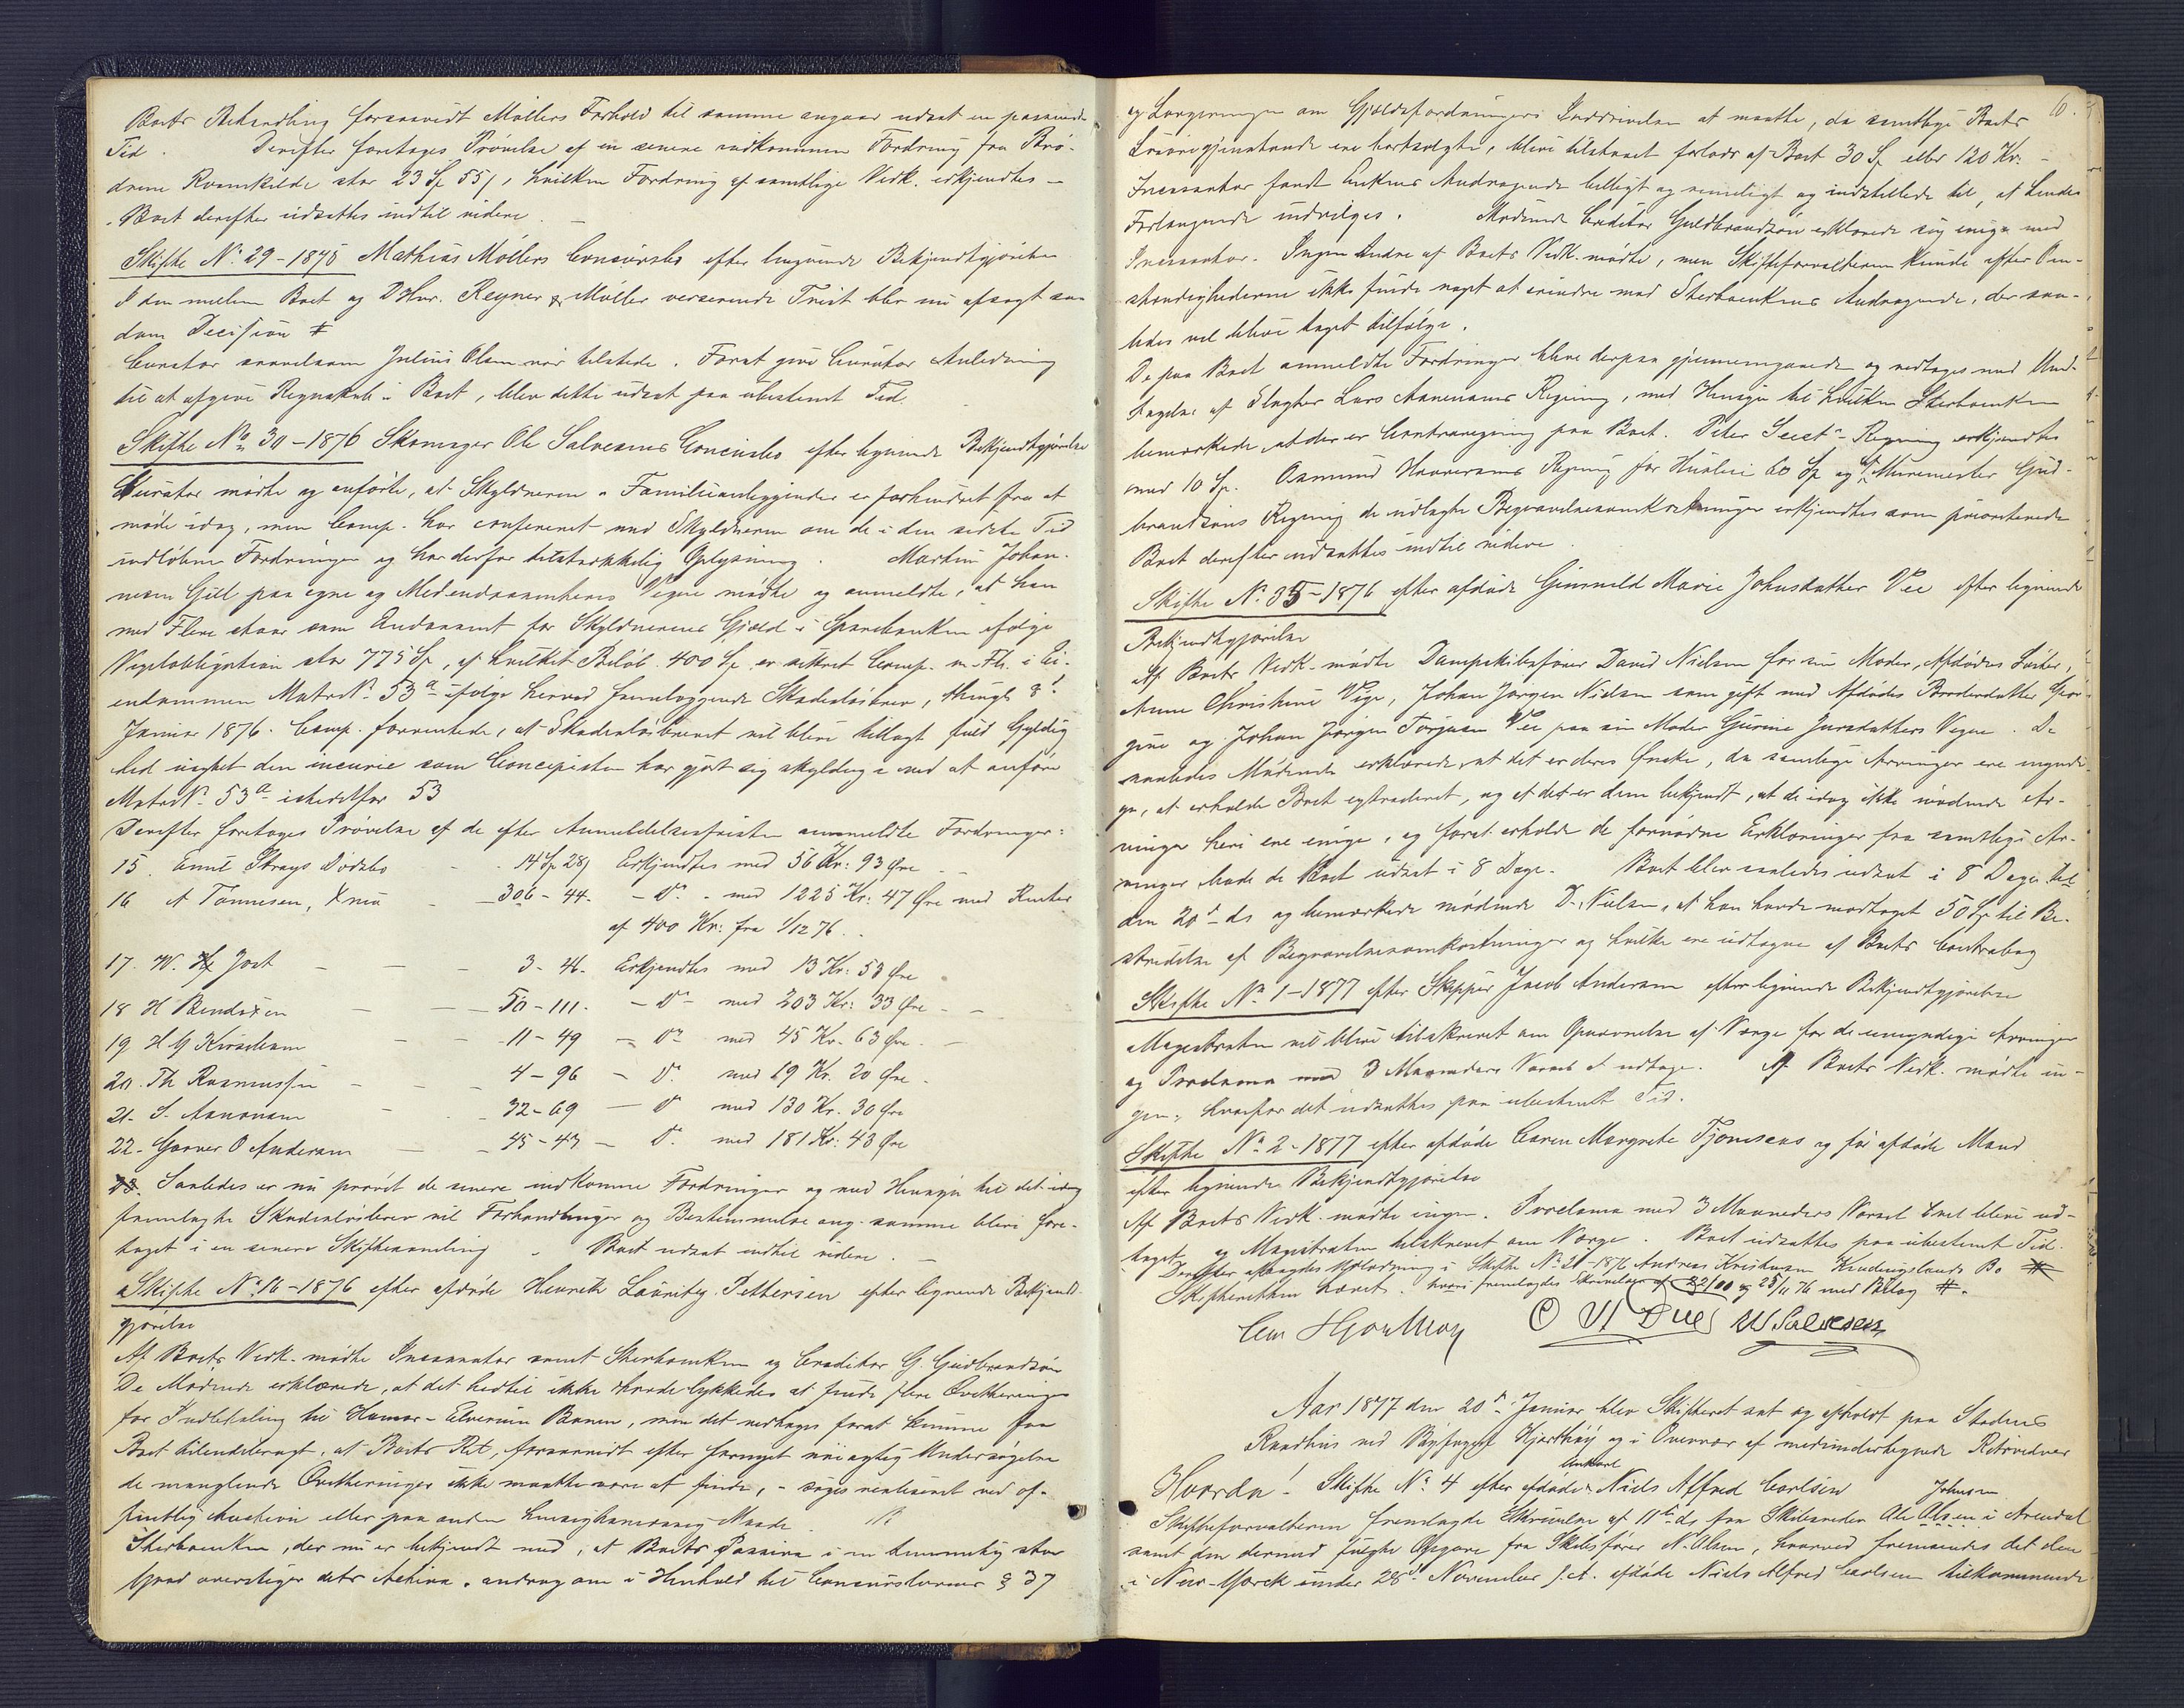 Boets Behandling forsaavidt Møllers Forhold til samme angaar udsat en passende
Tid. Derefter foretages Prøvelse af en senere indkommen Fordring fra Brø-
drene Kvamkilde stor 23 Sp 55 ß, hvilken Fordring af samtlige Vedk. erkjendtes —
Boet derefter udsattes indtil videre. —
Skifte No. 29 - 1875 Mathias Møllers Concursbo efter lignende Bekjendtgjørelse
I den mellem Boet og DHrr. Reyner & Møller verserende Tvist blev nu afsagt saa-
dan Decision #
Curator saavelsom Julius Olsen var tilstede. Forat give Curator Anledning
til at afgive Regnskab i Boet, blev dette udsat paa ubestemt Tid.
Skifte No. 30 - 1876 Skomager Ole Salvesens Concursbo efter lignende Bekjendtgjørelse
Curator mødte og anførte, at Skyldneren a Familieanliggender er forhindret fra at
møde idag, men Comp. har confereret med Skyldneren om de i den sidste Tid
indløbne Fordringer og har derfor tilstrækkelig Oplysning. Martin Johan-
nesen Gill paa egne og Medendossenters Vegne mødte og anmeldte, at han
med Flere staar som Endossent for Skyldnerens Gjæld i Sparebanken ifølge
Vexelobligation stor 775 Sp, af hvilket Beløb 400 Sp er sikret Comp. m. Fl. i Ei-
endommen Matr No. 53 a ifølge herved fremlæggende Skadesløsbrev, thinglt 3
Januar 1876. Comp. formentede, at Skadesløsbrevet vil blive tillagt fuld Gyldig-
hed uagtet den incurie som Concipisten har gjort sig skyldig i ved at anføre
Matr No. 53 a istedetfor 53
Derefter foretages Prøvelse af de efter Anmeldelsesfristen anmeldte Fordringer:
15. Emil Strays Dødsbo - - 14 Sp 28 ß Erkjendtes med 56 Kr: 93 Øre - -
16 A Tønnesen, Xnia - - 306 - 44 - Do - med 1225 Kr: 47 Øre med Renter
af 400 Kr: fra 1/12 76.
17. W. Jost - - - 3 - 46. Erkjendtes med 13 Kr: 53 Øre
18 H Bendixen - - - 50 - 111 - Do - med 203 Kr: 33 Øre - -
19 H G Kirschem - - 11 - 49 - Do med 45 Kr. 63 Øre -
20. Th Rasmussen - - - 4 - 96 - Do med 19 Kr. 20 Øre -
21. S. Aanonsen - - 32 - 69 - Do med 130 Kr. 30 Øre
22. Garver O Andersen - - 45 - 43 - Do. med 181 Kr: 43 Øre
Saaledes er nu prøvet de senere indkomne Fordringer og med Hensyn til det idag
fremlagte Skadesløsbrev vil Forhandlinger og Bestemmelse ang. samme blive fore-
taget i en senere Skiftesamling. Boet udsat indtil videre. —
Skifte No. 16 - 1876 efter afdøde Henrik Lauritz Pettersen efter lignende Bekjendt-
gjørelse
Af Boets Vedk. mødte Incassator samt Sterboenken og Creditor G. Gudbrandsøn
De Mødende erklærede, at det hertil ikke havde lykkedes at finde flere Qvitteringer
for Indbetaling til Hamar-Elverum Banen, men det vedtages forat kunne faa
Boet tilendebragt, at Boets Ret, forsaavidt efter fornyet nøiagtig Undersøgelse
de manglende Qvitteringer ikke maatte være at finde, - søges realiseret ved of-
fentlig Auction eller paa anden hensigtsmæssig Maade.
Sterboenken, der nu er bekjendt med, at Boets Passiva i en temmelig stor
Grad overstiger dets Activa, androg om i Henhold til Concurslovens § 37
6.
og Lovgivningen om Gjældsfordringers Inddrivelse at maatte, da samtlige Boets
Løsøregjenstande ere bortsolgte, blive tilstaaet forlods af Boet 30 Sp eller 120 Kr. -
Incassator fandt Enkens Andragende billigt og rimeligt og indstillede til, at hendes
Forlangende indvilges. Mødende Creditor Guldbrandsøn erklærede sig enige med
Incassator. Ingen Andre af Boets Vedk. mødte, men Skifteforvalteren kunde efter Om-
stændighederne ikke finde noget at erindre mod Sterboenkens Andragende, der saa-
ledes vil blive taget tilfølge.
De paa Boet anmeldte Fordringer bleve derpaa gjennemgaaede og vedtages med Und-
tagelse af Slagter Lars Aanensens Regning, med Hensyn til hvilken Sterboenken
bemærkede, at der er Contraregning paa Boet. Peter Regning erkjendtes
med 10 Sp. Osmund Haaversens Regning for Husleie 60 Sp og af Murmester Gud-
brandsøns Regning de udlagte Begravelsesomkostninger erkjendtes som prioriterede
Boet derefter udsattes indtil videre.
Skifte No. 35 - 1876 efter afdøde Gunvild Marie Johnsdatter Vee efter lignende
Bekjendtgjørelse
Af Boets Vedk. mødte Dampskibsfører David Nielsen for sin Moder, Afdødes Søster,
Anne Christine Vige, Johan Jørgen Nielsen som gift med Afdødes Broderdatter
gine og Johan Jørgen Torjusen Vee paa sin Moder Gurine Jensdatters Vegne. De
saaledes Mødende erklærede, at det er deres Ønske, da samtlige Arvinger ere myndi-
ge, at erholde Boet extraderet, og at det er dem bekjendt, at de idag ikke mødende Ar-
vinger heri ere enige, og forat erholde de fornødne Erklæringer fra samtlige Ar-
vinger bade de Boet udsat i 8 Dage. Boet blev saaledes udsat i 8 Dage til
den 20de ds og bemærkede mødende D. Nielsen, at han havde modtaget 50 Sp til Be-
stridelse af Begravelsesomkostninger og hvilke ere udtagne af Boets Contrabog
Skifte No. 1 - 1877 efter Skipper Jacob Andersen efter lignende Bekjendtgjørelse
Magistraten vil blive tilskrevet om Opnævnelse af Værge for de umyndige Arvinger
og Proclama med 3 Maaneders Varsel at udtage. Af Boets Vedk. mødte in-
gen, hvorfor det udsattes paa ubestemt Tid.
Skifte No. 2 - 1877 efter afdøde Caren Margrete Tjomsens og før afdøde Mand
efter lignende Bekjendtgjørelse
Af Boets Vedk. mødte ingen. Proclama med 3 Maaneders Varsel skal blive ud-
taget og Magistraten tilskrevet om Værge. Boet udsattes paa ubestemt Tid.
Derefter afsagdes Udlodning i Skifte No. 21 - 1876 Andreas Kristensen Knudevigslands Bo #
Skifteretten hævet. hvori fremlagdes Skrivelser af 22/10 og 25/11 76 med Bilag #.
Carl Hjorthøy O H Due W Salvesen
Aar 1877 den 20de Januar blev Skifteret sat og afholdt paa Stadens
Raadhus ved Byfoged Hjorthøy og i Overvær af medunderskrevne Retsvidner
Hvorda! Skifte No. 4 efter afdøde Ankarl Niels Alfred Carlsen
Skifteforvalteren fremlagde Skrivelse af 11te ds fra Skibsreder Ole Olsen Johnsen i Arendal
samt den dermed fulgte Opgave fra Skibsfører N. Olsen, hvorved fremsendes det den
i New-Yorck under 28de November f. A. afdøde Niels Alfred Carlsen tilkommende